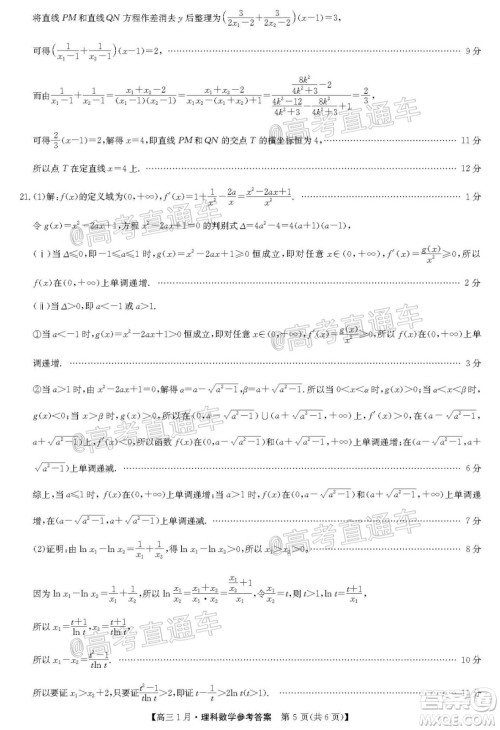 将直线 PM 和直线 QN 方程作差消去 y 后整理为(3/(2x₁-2)+3/(2x₂-2))(x-1)=3,
可得(1/(x₁-1)+1/(x₂-1))(x-1)=2, 9 分
而由1/(x₁-1)+1/(x₂-1)=(x₁+x₂-2)/((x₁-1)(x₂-1))=(x₁+x₂-2)/(x₁x₂-(x₁+x₂)+1)=(8k²/(4k²+3)-2)/((4k²-12)/(4k²+3)-8k²/(4k²+3)+1)=2/3,
可得2/3(x-1)=2,解得 x=4,即直线 PM 和 QN 的交点 T 的横坐标恒为 4. 11 分
所以点 T 在定直线 x=4 上. 12 分
21.(1)解:f(x)的定义域为(0,+∞),f′(x)=1+1/x²-2a/x=(x²-2ax+1)/x². 1 分
令 g(x)=x²-2ax+1,方程 x²-2ax+1=0 的判别式 Δ=4a²-4=4(a+1)(a-1),
(ⅰ)当 Δ≤0,即-1≤a≤1 时,g(x)=x²-2ax+1≥0 恒成立,即对任意 x∈(0,+∞),f′(x)=g(x)/x²≥0,
所以 f(x)在(0,+∞)上单调递增. 2 分
(ⅱ)当 Δ>0,即 a<-1 或 a>1.
①当 a<-1 时,g(x)=x²-2ax+1>0 恒成立,即对任意 x∈(0,+∞),f′(x)=g(x)/x²>0,所以 f(x)在(0,+∞)上单
调递增. 3 分
②当 a>1 时,由 x²-2ax+1=0,解得 α=a-√(a²-1),β=a+√(a²-1).所以当 0<x<α 时,g(x)>0;当 α<x<β
时,g(x)<0;当 x>β 时,g(x)>0,所以在(0,a-√(a²-1))∪(a+√(a²-1),+∞)上,f′(x)>0,在(a-√(a²-1),
a+√(a²-1))上,f′(x)<0,所以函数 f(x)在(0,a-√(a²-1))和(a+√(a²-1),+∞)上单调递增;在(a-√(a²-1),a
+√(a²-1))上单调递减. 6 分
综上,当 a≤1 时,f(x)在(0,+∞)上单调递增;当 a>1 时,在(0,a-√(a²-1)),(a+√(a²-1),+∞)上单调递增,在
(a-√(a²-1),a+√(a²-1))上单调递减. 7 分
(2)证明:由 ln x₁-ln x₂=1/x₁+1/x₂,得 ln x₁-ln x₂>0,所以 x₁>x₂>0. 8 分
因为 ln x₁-ln x₂=1/x₁+1/x₂,所以 ln x₁/x₂=(x₁+x₂)/(x₁x₂)=(x₁/x₂+1)/x₁,令 x₁/x₂=t(t>1),则 ln t=(t+1)/x₁,
所以 x₁=(t+1)/ln t,所以 x₂=(t+1)/(tln t).
所以 10 分
所以要证 x₁>x₂+2,只要证 11 分
高三 1 月·理科数学参考答案 第 5 页(共 6 页)
@高考直通车